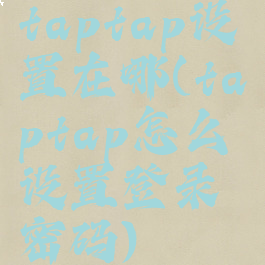 taptap设
置在哪(ta
ptap怎么
设置登录
密码)